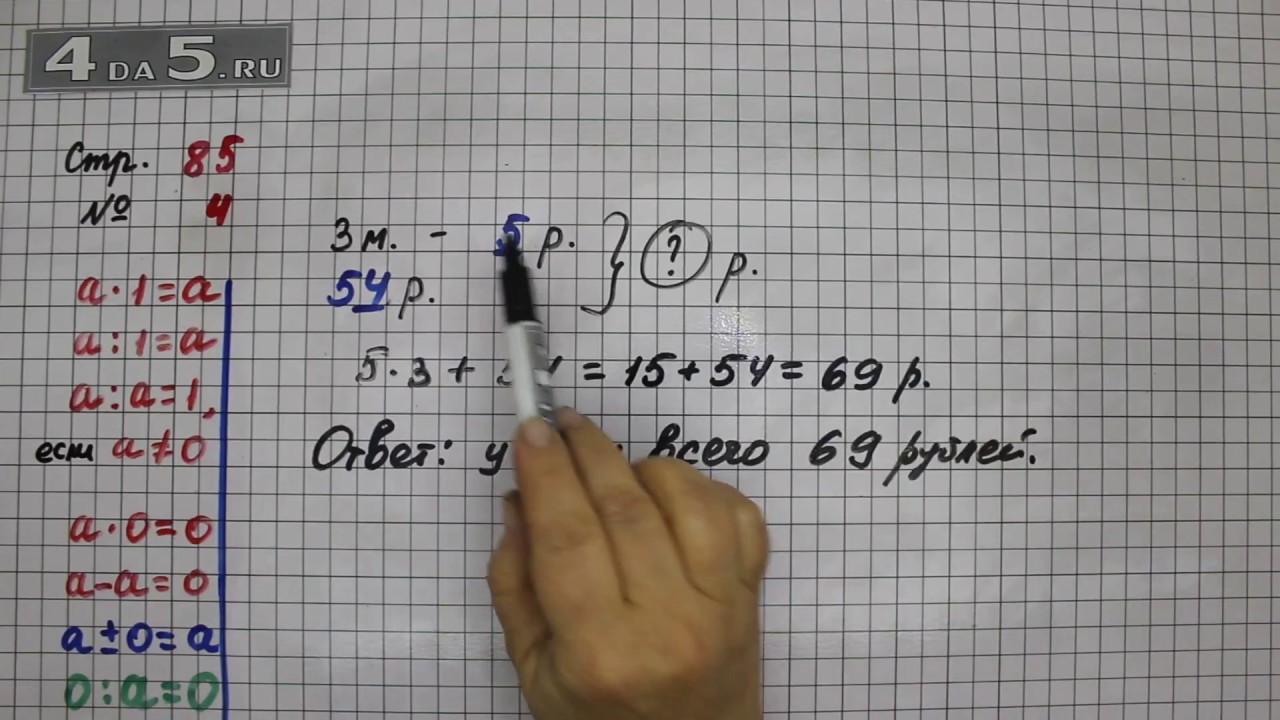 4 DA 5.RU
Стр. 85
№ 4
a·1=a
a:1=a
a:a=1,
если a≠0
a·0=0
a-a=0
a±0=a
0:a=0
3 м. - 5 р. } ? р.
54 р.
5·3+ = 15+54= 69 р.
Ответ: всего 69 рублей.